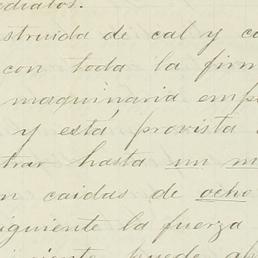 ediatos.
struida de cal y ca
con toda la firm
maquinaria emp
y está provista
trar hasta un m
n caidas de ocho
iguiente la fuerza
puede